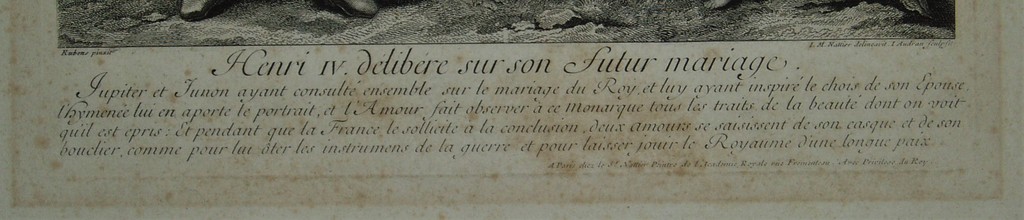 Rubens pinxit
I. M. Nattier delineavit I Audran sculpsit
Henri IV. délibére sur son Futur mariage.
Jupiter et Junon ayant consulté ensemble sur le mariage du Roy, et luy ayant inspiré le chois de son Epouse,
l'hymenée lui en aporte le portrait, et l'Amour, fait observer à ce monarque tous les traits de la beauté dont on voit
qu'il est épris: Et pendant que la France, le sollicite a la conclusion, deux amours se saisissent de son casque et de son
bouclier, comme pour lui ôter les instrumens de la guerre et pour laisser jouir le Royaume d'une longue paix.
A Paris chez le Sr. Nattier Peintre de l'Academie Royale rüe Fromenteau. Avec Privilege du Roy.